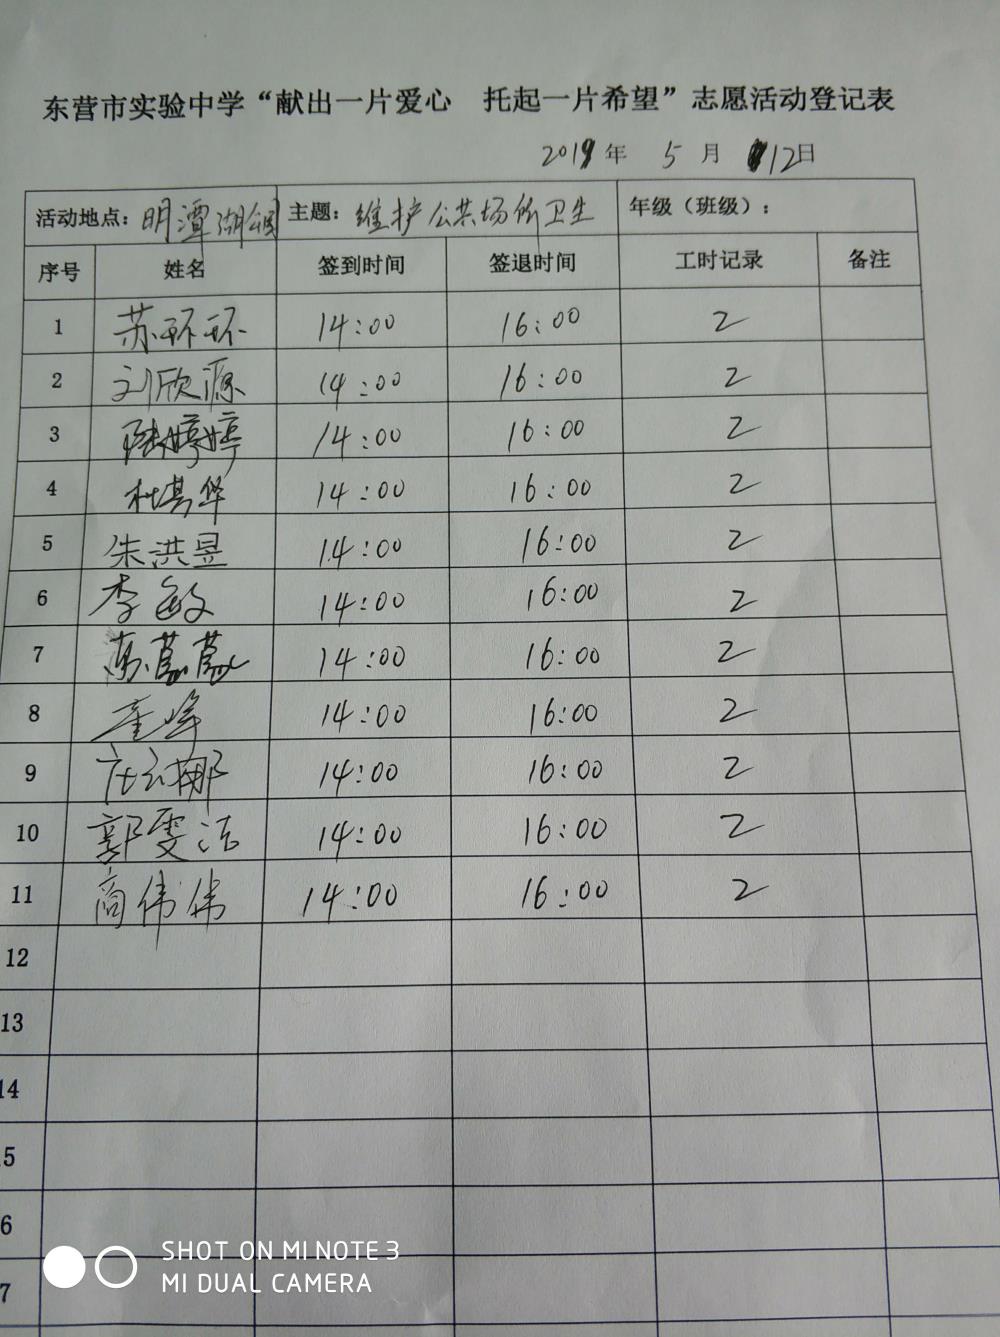 东营市实验中学“献出一片爱心 托起一片希望”志愿活动登记表
2019年 5 月 12日
活动地点：明潭湖公园 主题：维护公共场所卫生 年级（班级）：
序号 姓名 签到时间 签退时间 工时记录 备注
1 苏环环 14:00 16:00 2
2 刘欣源 14:00 16:00 2
3 陆婷婷 14:00 16:00 2
4 杜其华 14:00 16:00 2
5 朱洪昱 14:00 16:00 2
6 李敏 14:00 16:00 2
7 14:00 16:00 2
8 14:00 16:00 2
9 14:00 16:00 2
10 郭雯洁 14:00 16:00 2
11 商伟伟 14:00 16:00 2
12
13
14
15
6
7
SHOT ON MI NOTE 3
MI DUAL CAMERA